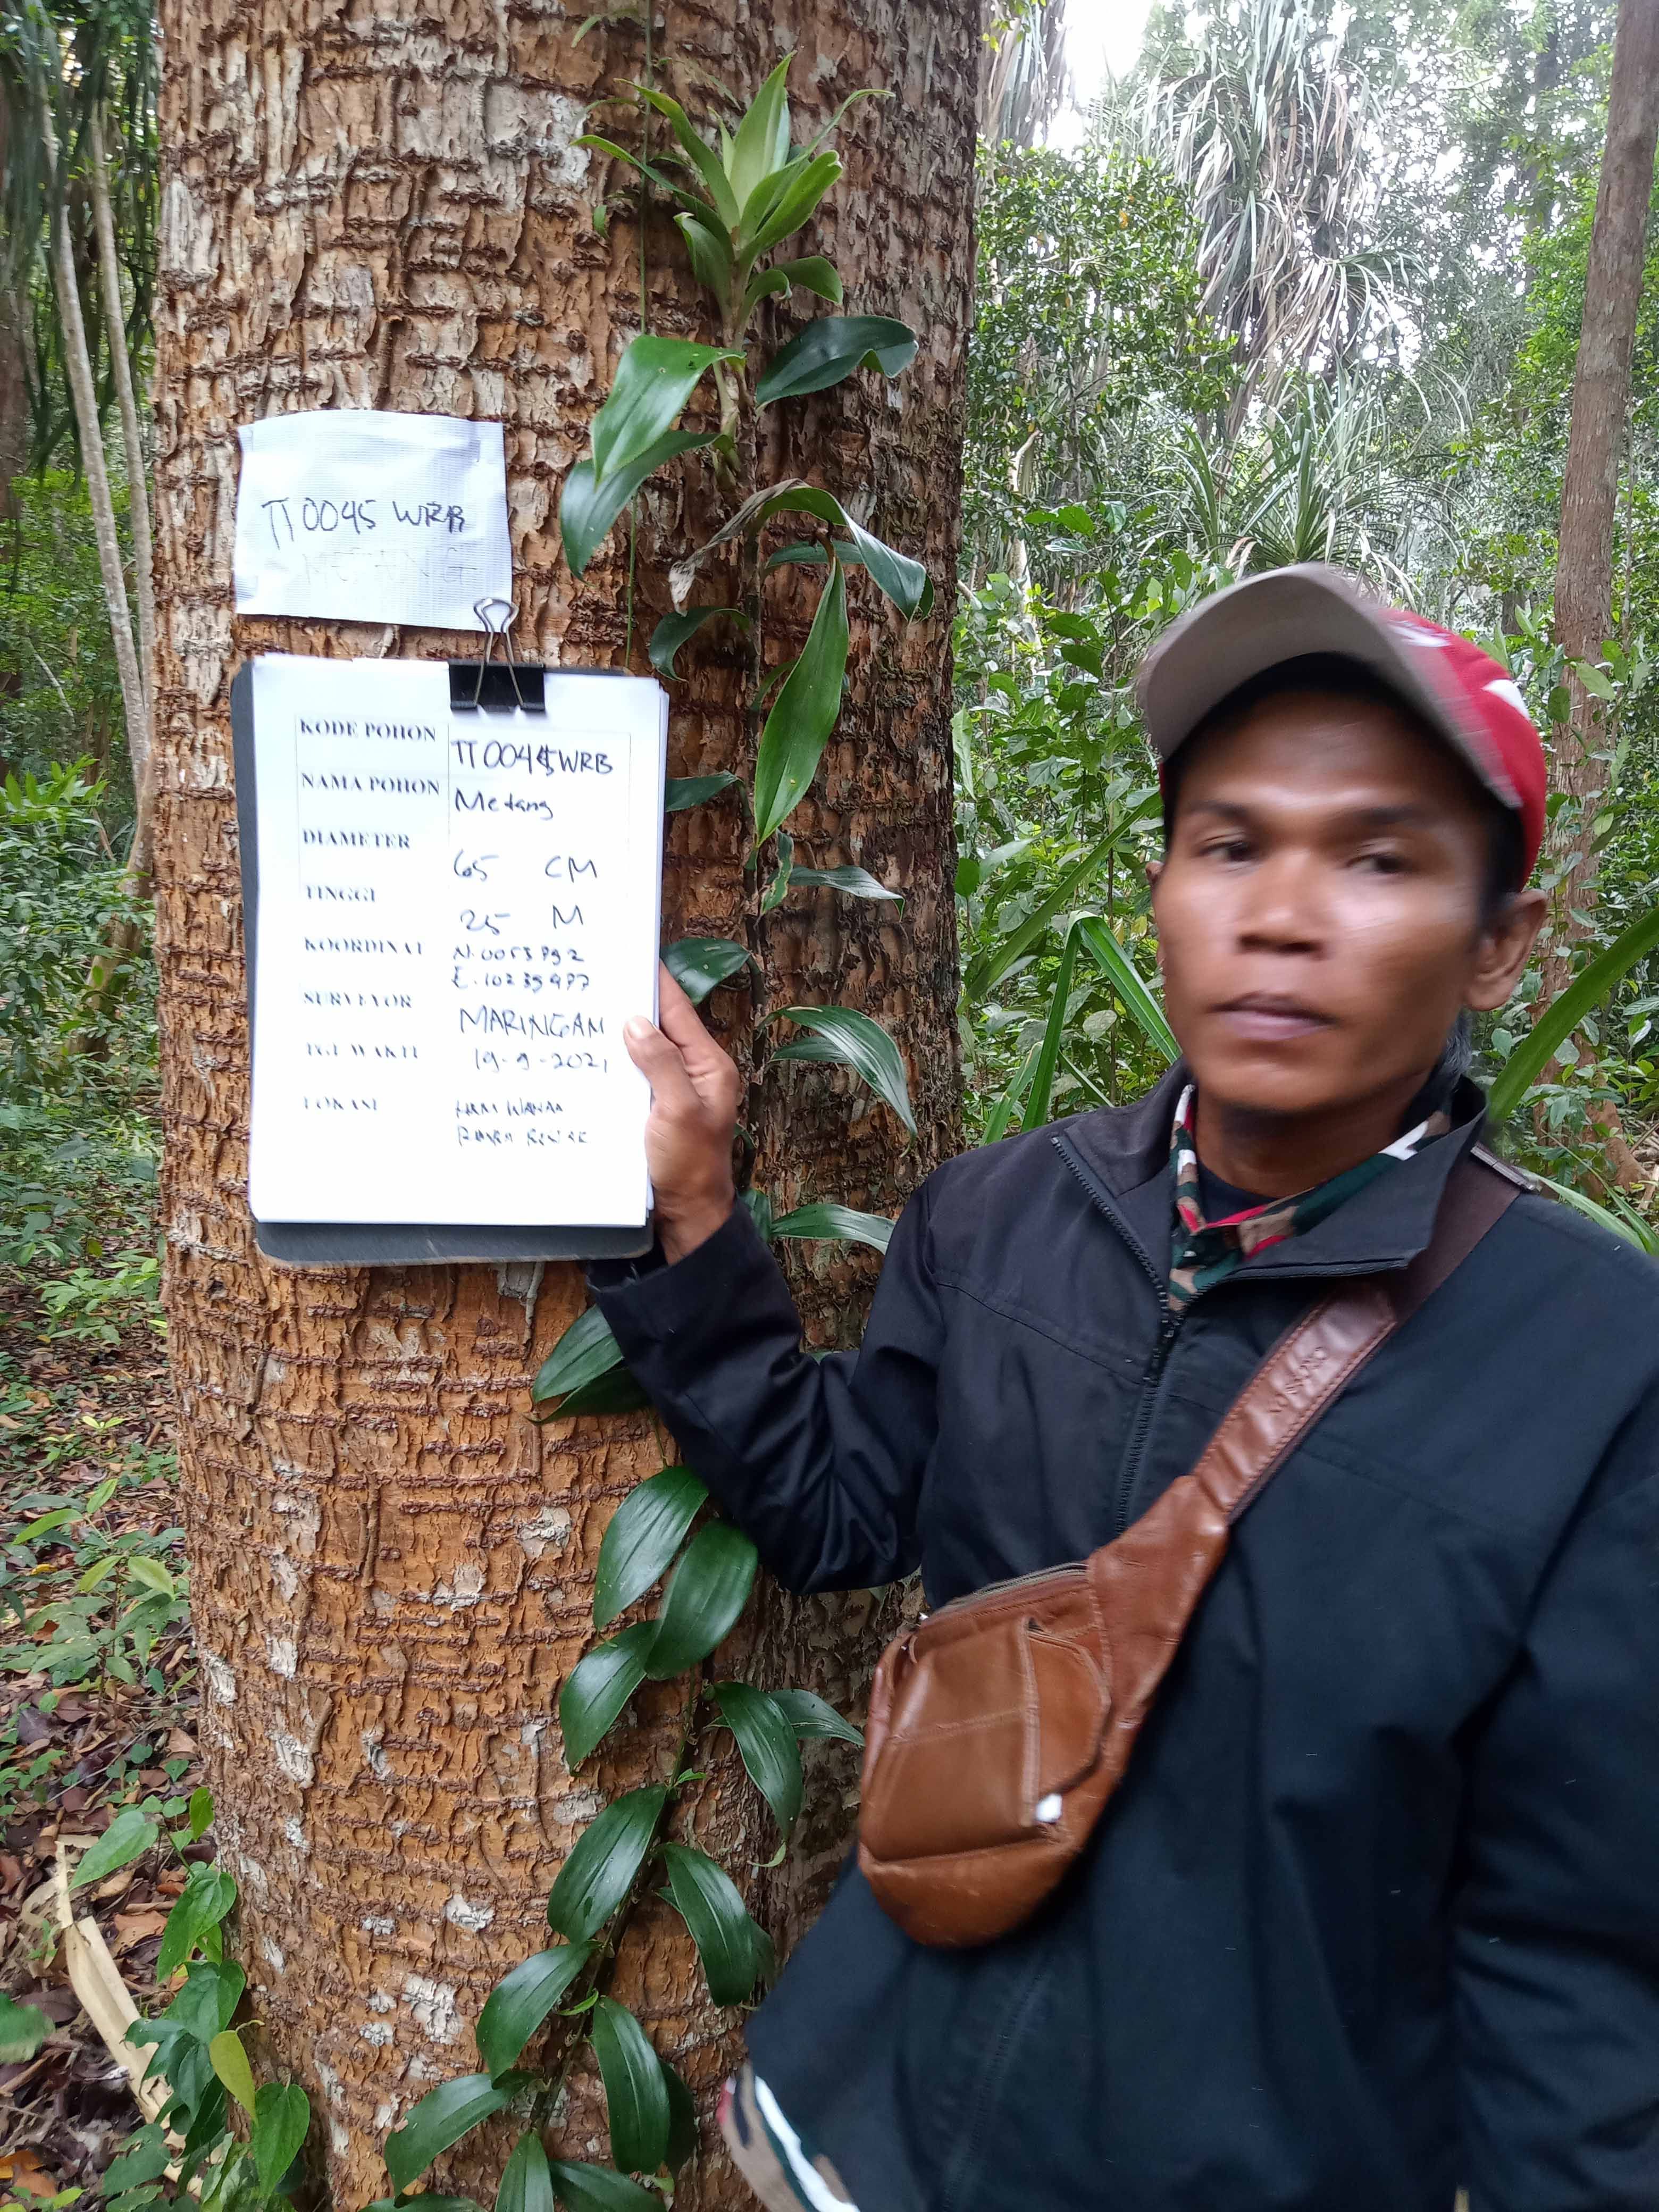 TT 0045 WRB
METANG
KODE POHON TT 0045 WRB
NAMA POHON Metang
DIAMETER 65 CM
TINGGI 25 M
KOORDINAT N. 0053892
E. 10235977
SURVEYOR MARINGAN
TGL WAKTU 19-9-2021
LOKASI